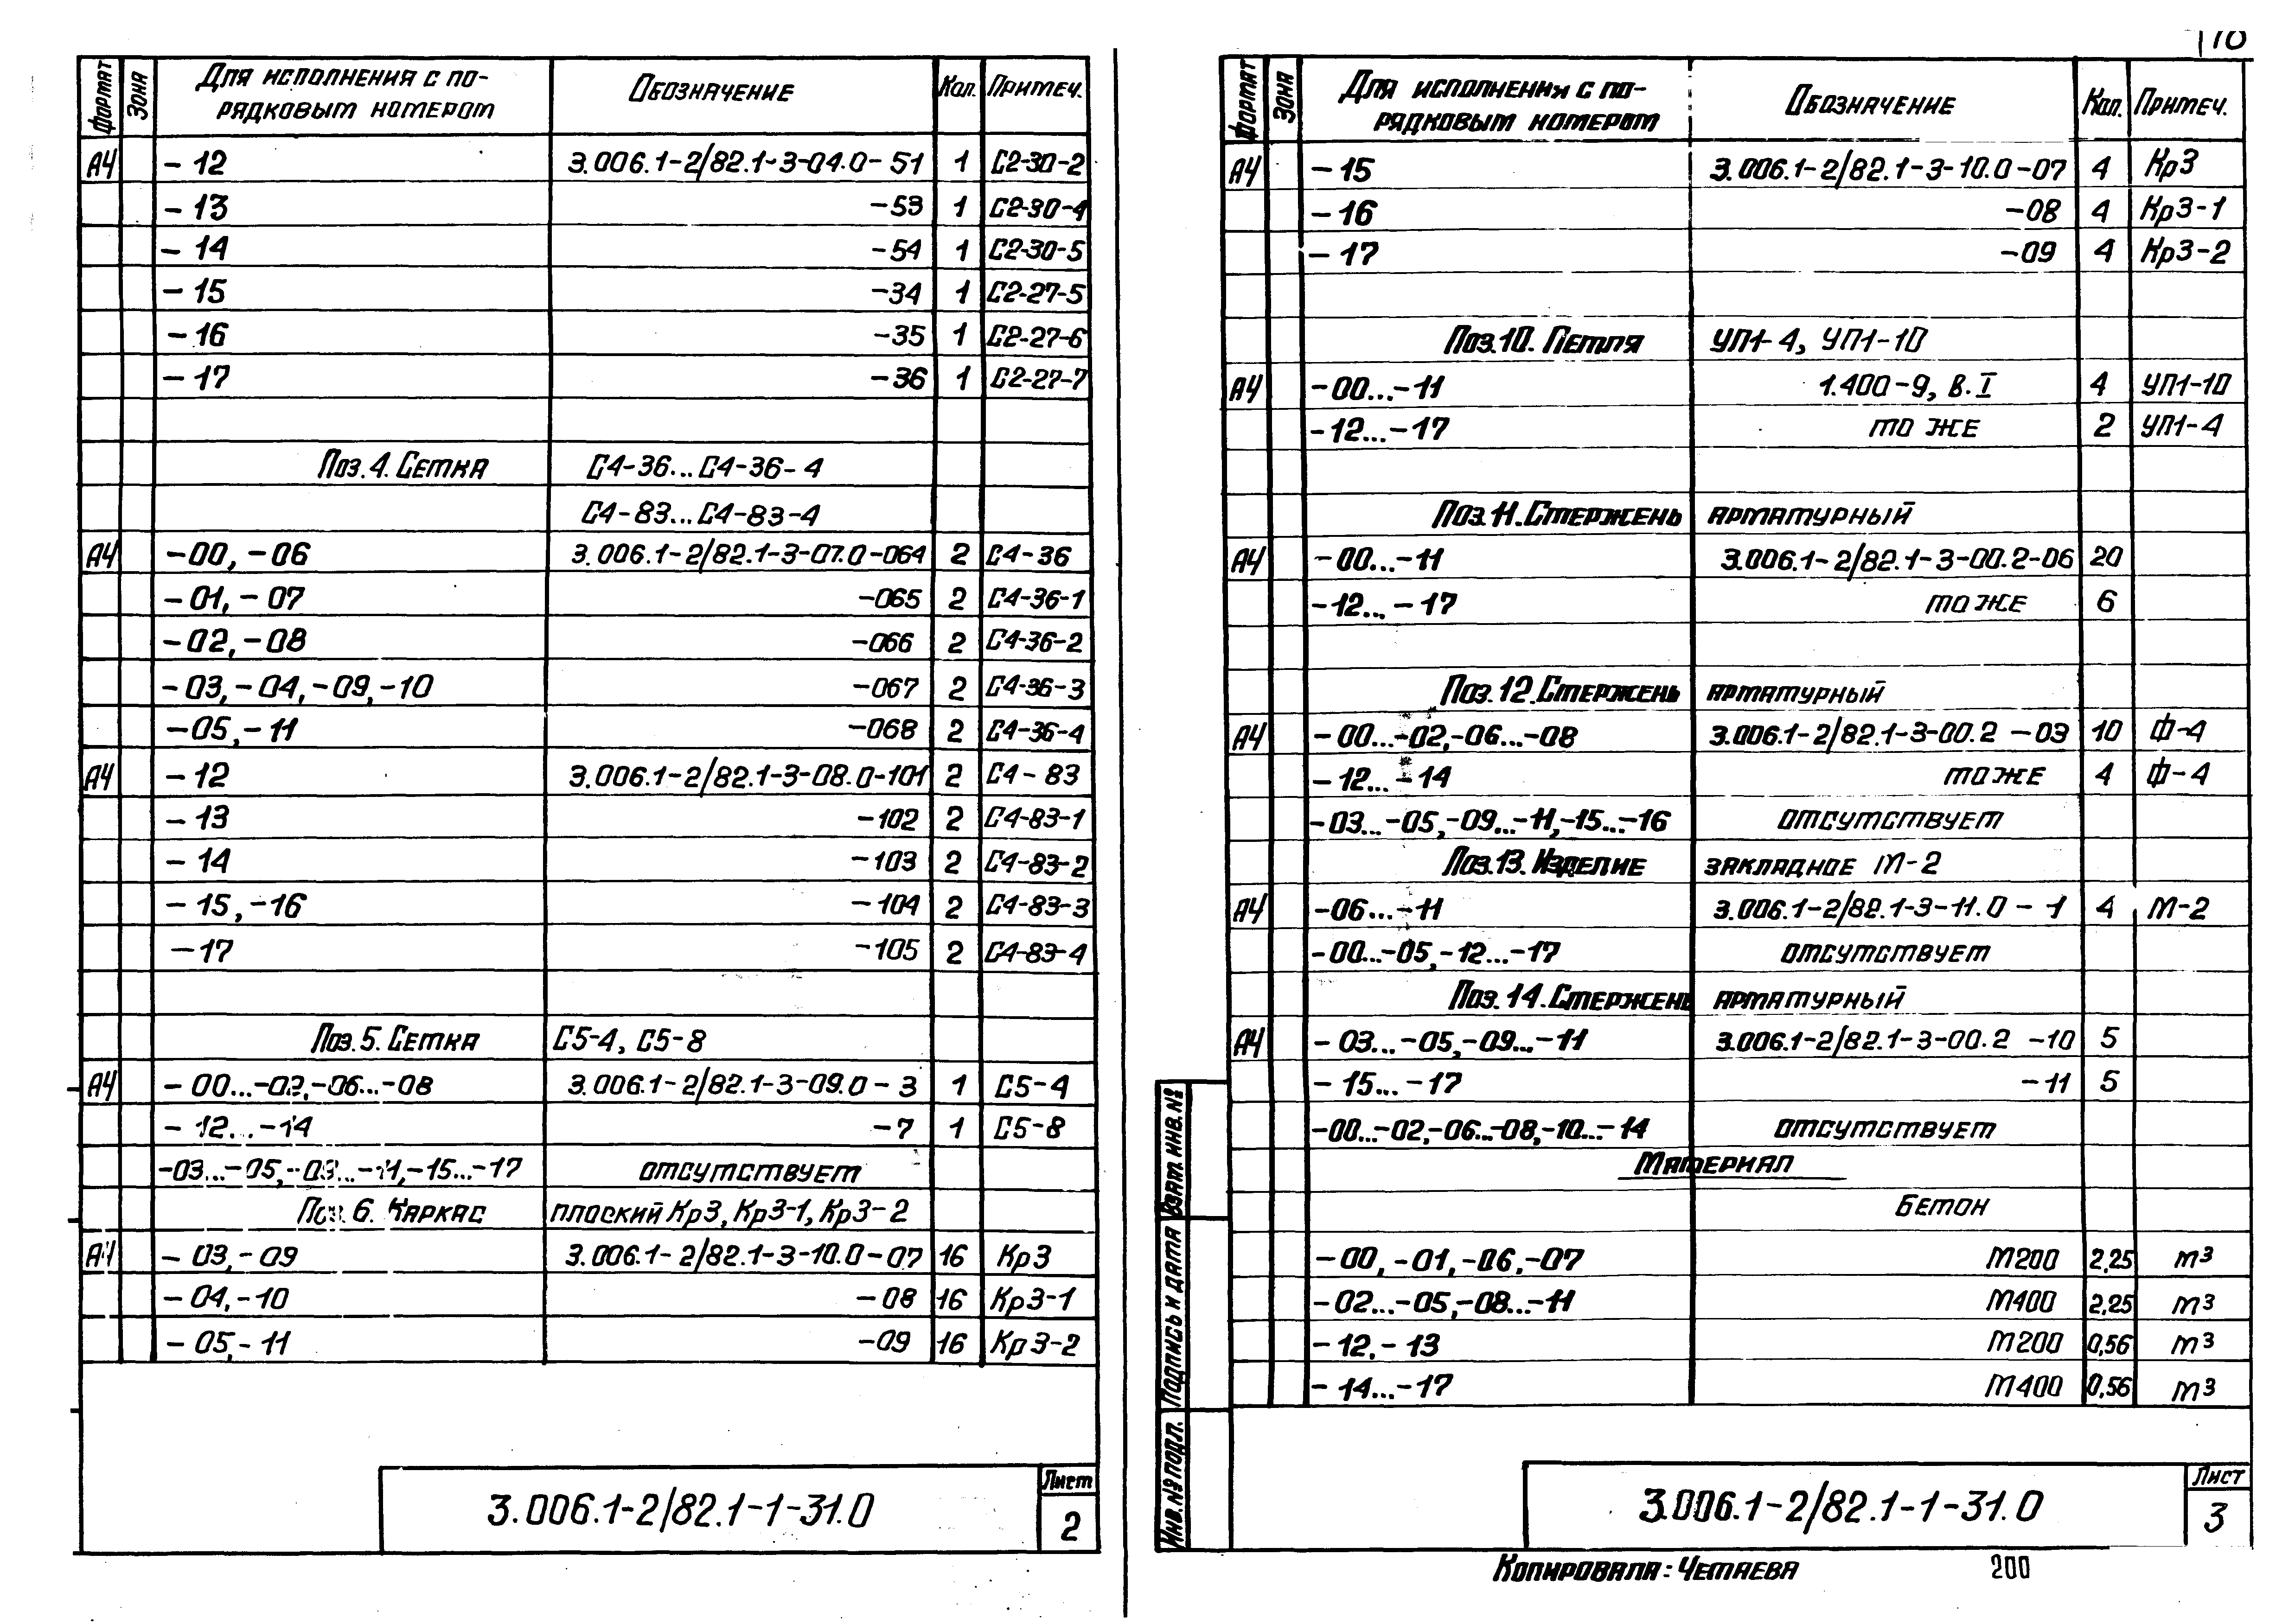 Формат Зона Для исполнения с по- Обозначение Кол. Примеч.
рядковым номером
А4 -12 3.006.1-2/82.1-3-04.0-51 1 С2-30-2
-13 -53 1 С2-30-4
-14 -54 1 С2-30-5
-15 -34 1 С2-27-5
-16 -35 1 С2-27-6
-17 -36 1 С2-27-7
Поз.4. Сетка С4-36...С4-36-4
С4-83...С4-83-4
А4 -00, -06 3.006.1-2/82.1-3-07.0-064 2 С4-36
-01, -07 -065 2 С4-36-1
-02, -08 -066 2 С4-36-2
-03, -04, -09, -10 -067 2 С4-36-3
-05, -11 -068 2 С4-36-4
А4 -12 3.006.1-2/82.1-3-08.0-101 2 С4-83
-13 -102 2 С4-83-1
-14 -103 2 С4-83-2
-15, -16 -104 2 С4-83-3
-17 -105 2 С4-83-4
Поз.5. Сетка С5-4, С5-8
А4 -00...-02,-06...-08 3.006.1-2/82.1-3-09.0-3 1 С5-4
-12...-14 -7 1 С5-8
-03...-05,-09...-11,-15...-17 отсутствует
Поз. 6. Каркас плоский Кр3, Кр3-1, Кр3-2
А4 -03,-09 3.006.1-2/82.1-3-10.0-07 16 Кр3
-04,-10 -08 16 Кр3-1
-05,-11 -09 16 Кр3-2
3.006.1-2/82.1-1-31.0
Лист
2
Формат Зона Для исполнения с по- Обозначение Кол. Примеч.
рядковым номером
А4 -15 3.006.1-2/82.1-3-10.0-07 4 Кр3
-16 -08 4 Кр3-1
-17 -09 4 Кр3-2
Поз.10. Петля УП1-4, УП1-10
А4 -00...-11 1.400-9, В.I 4 УП1-10
-12...-17 то же 2 УП1-4
Поз.11. Стержень арматурный
А4 -00...-11 3.006.1-2/82.1-3-00.2-06 20
-12...-17 то же 6
Поз.12. Стержень арматурный
А4 -00...-02,-06...-08 3.006.1-2/82.1-3-00.2-03 10 Ф-4
-12...-14 то же 4 Ф-4
-03...-05,-09...-11,-15...-16 отсутствует
Поз.13. Изделие закладное М-2
А4 -06...-11 3.006.1-2/82.1-3-11.0-1 4 М-2
-00...-05,-12...-17 отсутствует
Поз.14. Стержень арматурный
А4 -03...-05,-09...-11 3.006.1-2/82.1-3-00.2-10 5
-15...-17 -11 5
-00...-02,-06...-08,-10...-14 отсутствует
Материал
Бетон
-00,-01,-06,-07 М200 2,25 м³
-02...-05,-08...-11 М400 2,25 м³
-12,-13 М200 0,56 м³
-14...-17 М400 0,56 м³
Инв.№ подл. Подпись и дата Взам. инв.№
3.006.1-2/82.1-1-31.0
Лист
3
Копировала: Четаева 200